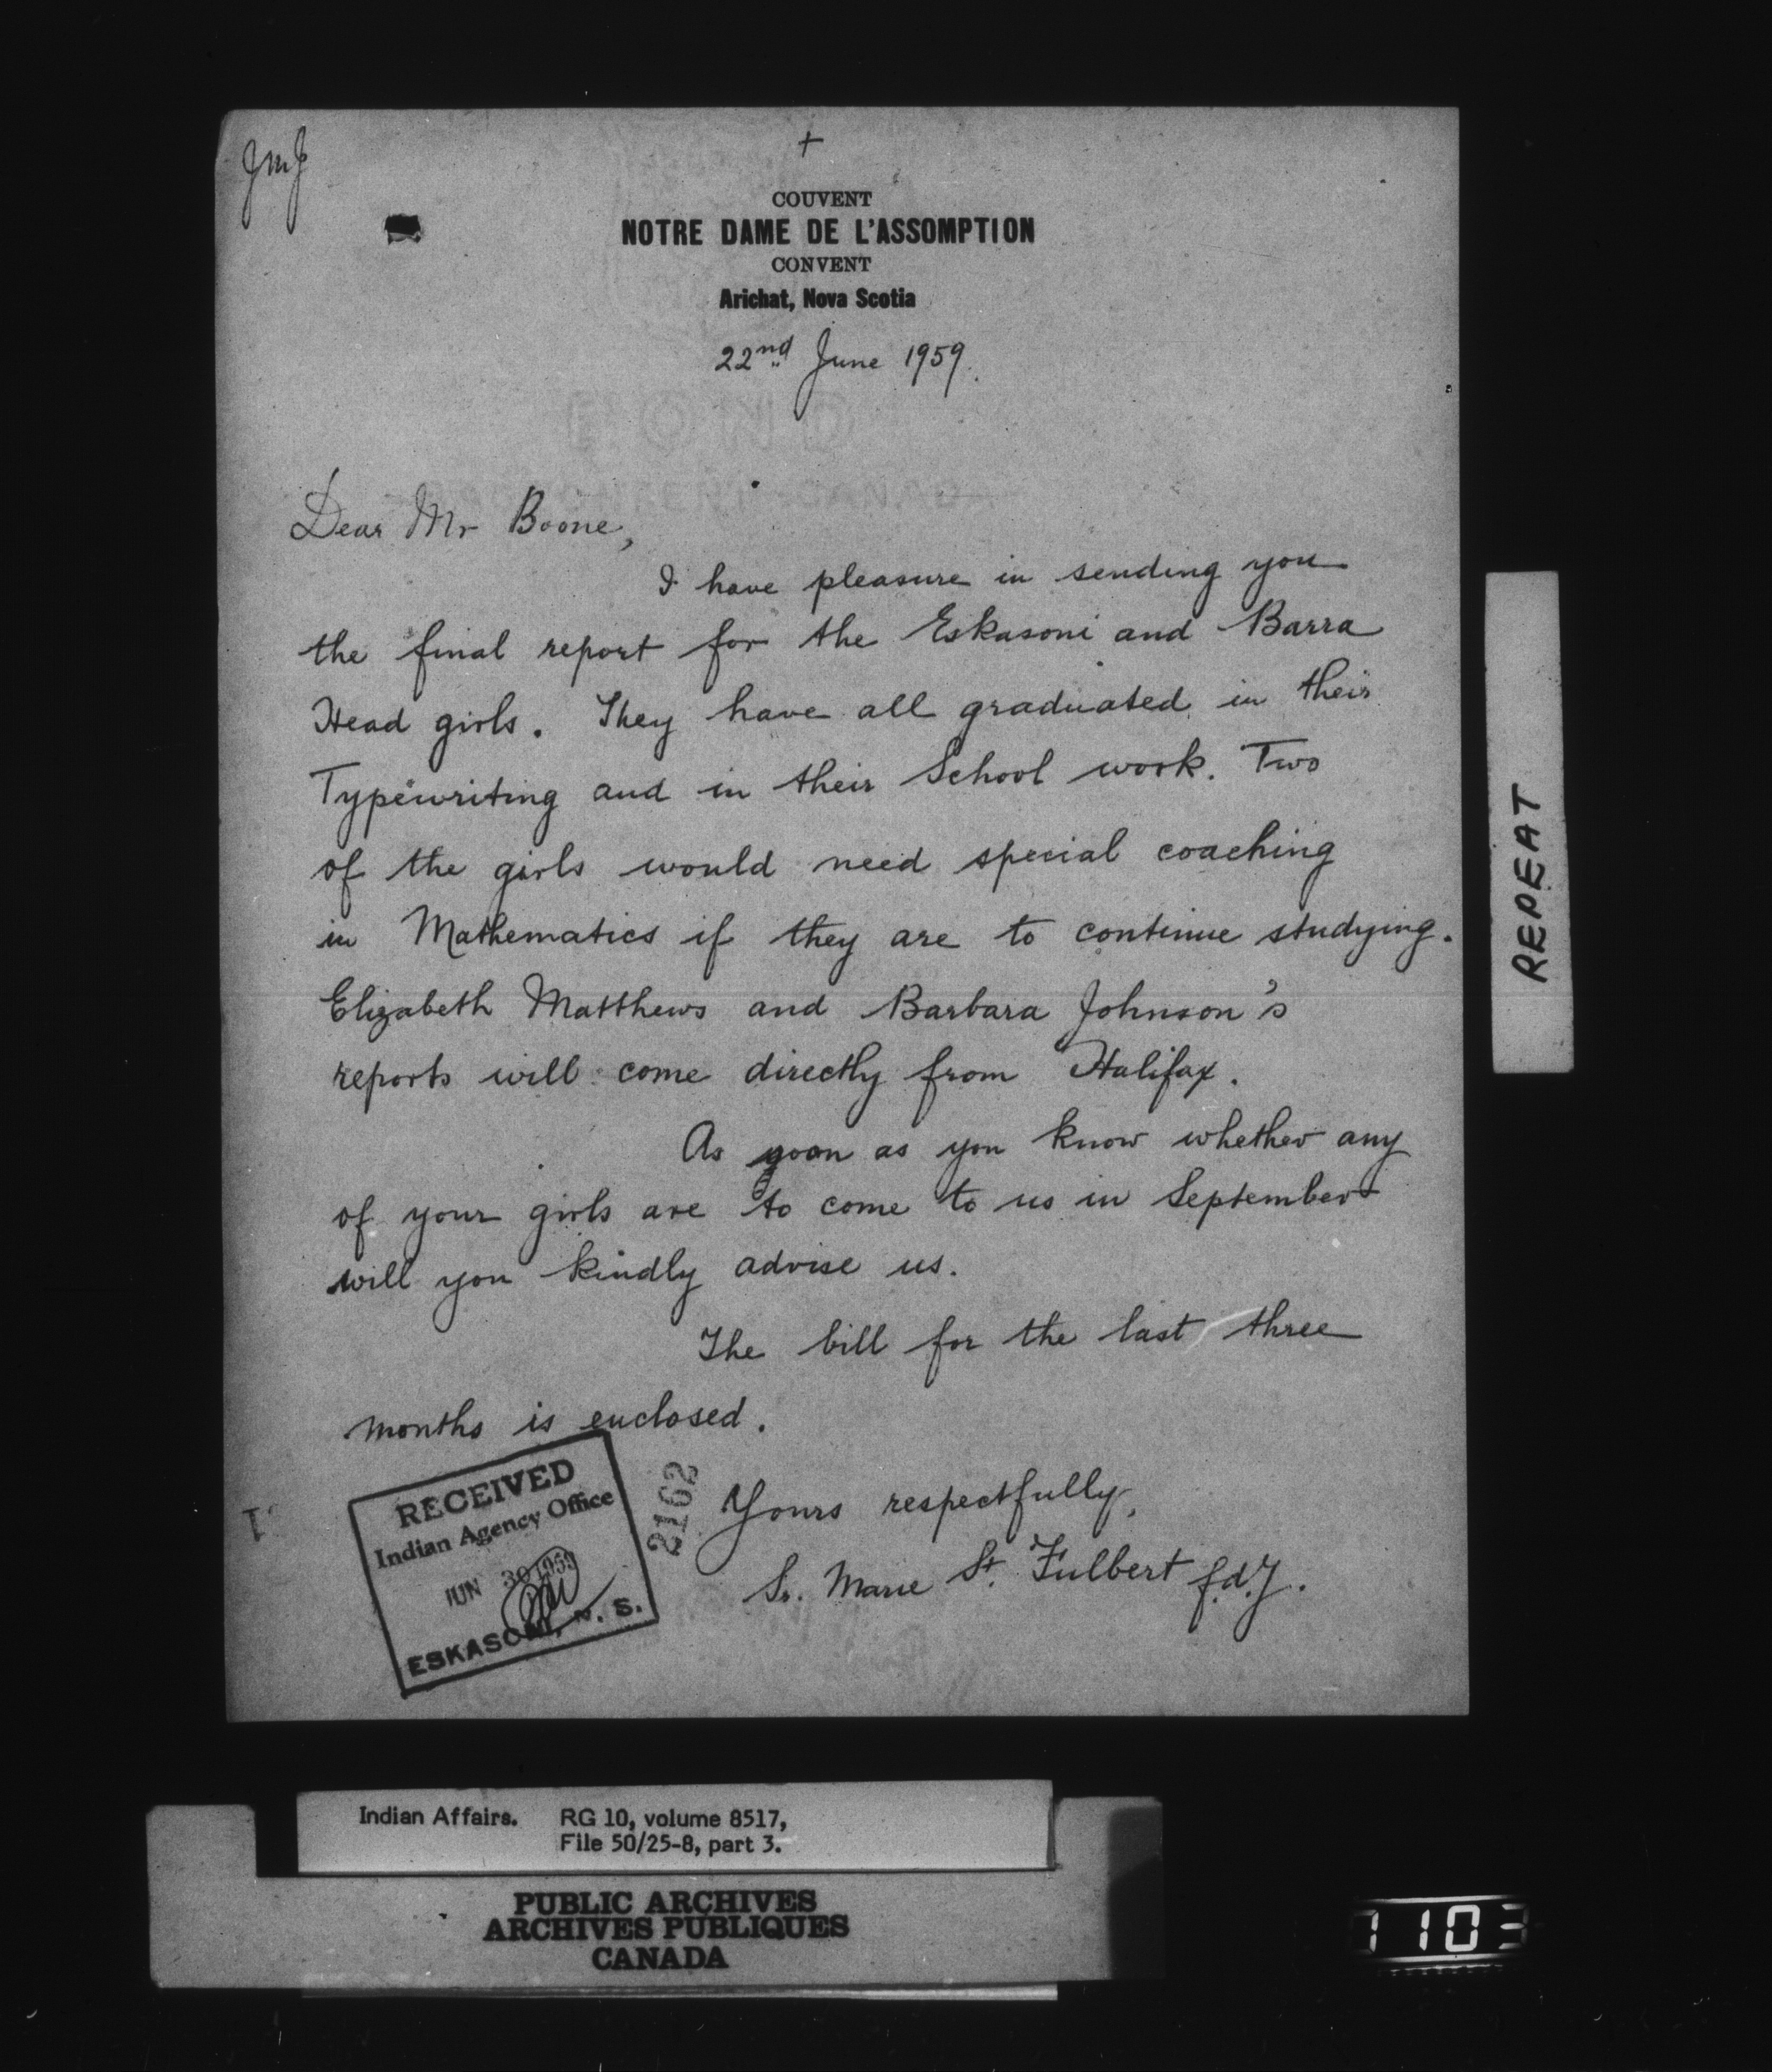 JMJ
+
COUVENT
NOTRE DAME DE L'ASSOMPTION
CONVENT
Arichat, Nova Scotia
22nd June 1959.
Dear Mr Boone,
I have pleasure in sending you
the final report for the Eskasoni and Barra
Head girls. They have all graduated in their
Typewriting and in their School work. Two
of the girls would need special coaching
in Mathematics if they are to continue studying.
Elizabeth Matthews and Barbara Johnson's
reports will come directly from Halifax.
As soon as you know whether any
of your girls are to come to us in September
will you kindly advise us.
The bill for the last three
months is enclosed.
Yours respectfully,
Sr. Marie St. Fulbert f.d.J.
RECEIVED
Indian Agency Office
JUN 30 1959
ESKASONI, N. S.
2162
REPEAT
Indian Affairs. RG 10, volume 8517,
File 50/25-8, part 3.
PUBLIC ARCHIVES
ARCHIVES PUBLIQUES
CANADA
1103